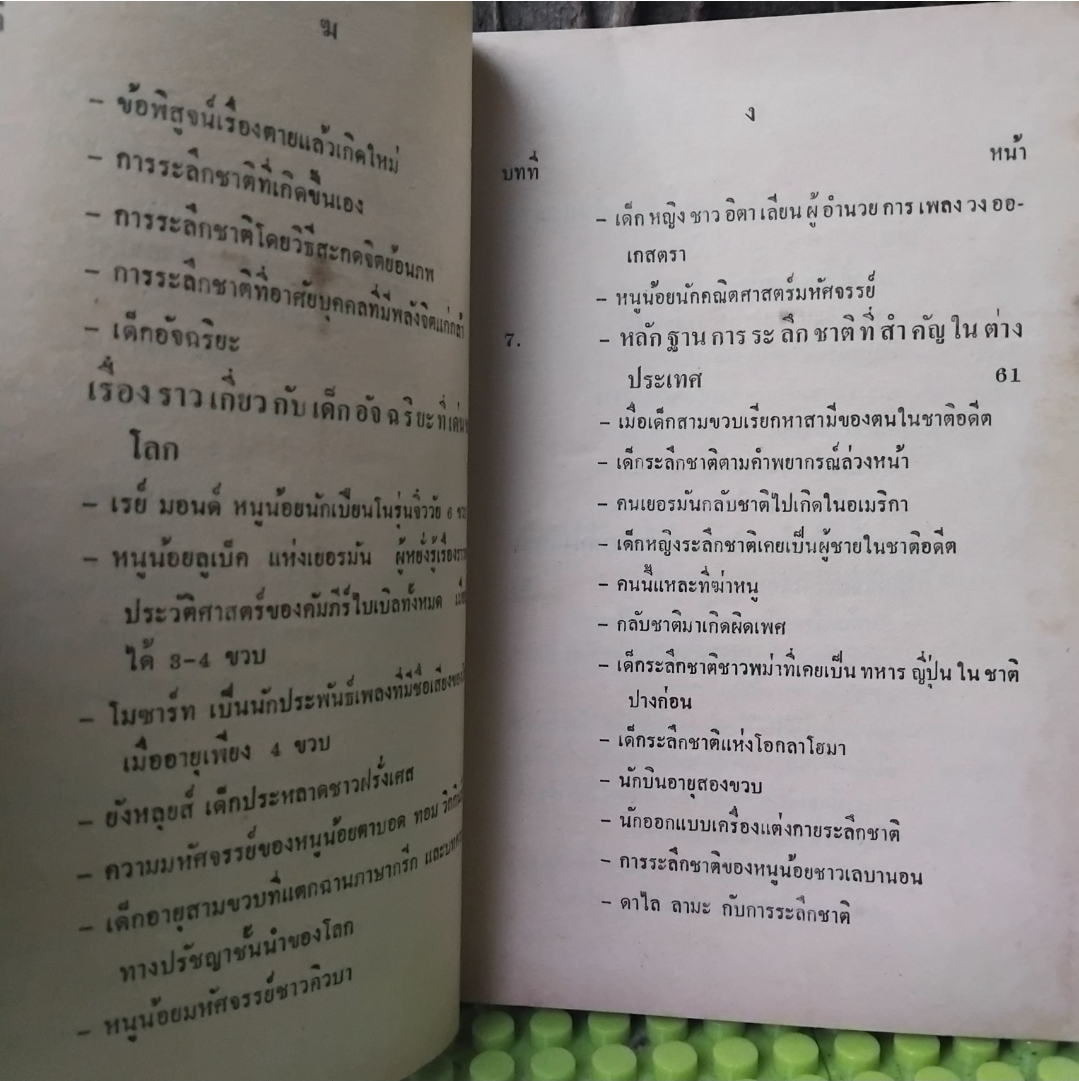 ฆ
- ข้อพิสูจน์เรื่องตายแล้วเกิดใหม่
- การระลึกชาติที่เกิดขึ้นเอง
- การระลึกชาติโดยวิธีสะกดจิตย้อนภพ
- การระลึกชาติที่อาศัยบุคคลที่มีพลังจิตแก่กล้า
- เด็กอัจฉริยะ
เรื่องราวเกี่ยวกับเด็กอัจฉริยะที่เด่น
โลก
- เรย์ มอนด์ หนูน้อยนักเปียนโนรุ่นจิ๋ววัย 6 ขวบ
- หนูน้อยลูเบ็ค แห่งเยอรมัน ผู้หยั่งรู้เรื่อง
ประวัติศาสตร์ของคัมภีร์ไบเบิลทั้งหมด
ได้ 3-4 ขวบ
- โมซาร์ท เป็นนักประพันธ์เพลงที่มีชื่อเสียงของ
เมื่ออายุเพียง 4 ขวบ
- ยังหลุยส์ เด็กประหลาดชาวฝรั่งเศส
- ความมหัศจรรย์ของหนูน้อยตาบอด ทอม
- เด็กอายุสามขวบที่แตกฉานภาษากรีก และ
ทางปรัชญาชั้นนำของโลก
- หนูน้อยมหัศจรรย์ชาวคิวบา
ง
บทที่ หน้า
- เด็กหญิงชาวอิตาเลียนผู้อำนวยการเพลงวงออ-
เกสตรา
- หนูน้อยนักคณิตศาสตร์มหัศจรรย์
7. - หลักฐานการระลึกชาติที่สำคัญในต่าง
ประเทศ 61
- เมื่อเด็กสามขวบเรียกหาสามีของตนในชาติอดีต
- เด็กระลึกชาติตามคำพยากรณ์ล่วงหน้า
- คนเยอรมันกลับชาติไปเกิดในอเมริกา
- เด็กหญิงระลึกชาติเคยเป็นผู้ชายในชาติอดีต
- คนนี้แหละที่ฆ่าหนู
- กลับชาติมาเกิดผิดเพศ
- เด็กระลึกชาติชาวพม่าที่เคยเป็นทหารญี่ปุ่นในชาติ
ปางก่อน
- เด็กระลึกชาติแห่งโอกลาโฮมา
- นักบินอายุสองขวบ
- นักออกแบบเครื่องแต่งกายระลึกชาติ
- การระลึกชาติของหนูน้อยชาวเลบานอน
- ดาไล ลามะ กับการระลึกชาติ